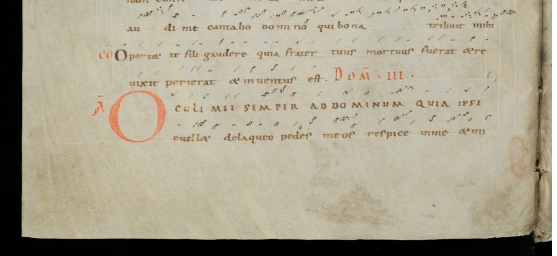 au di me cantabo domino quibona tribuit mihi
CO Oportæ te fili gaudere quia frater tuus mortuus fuerat ære
uixit perierat æinuentus est. Dom̄. III.
OCULI MEI SEMPER ADDOMINUM QUIA IPSE
euellæ delaqueo pedes meos respice inme æmi